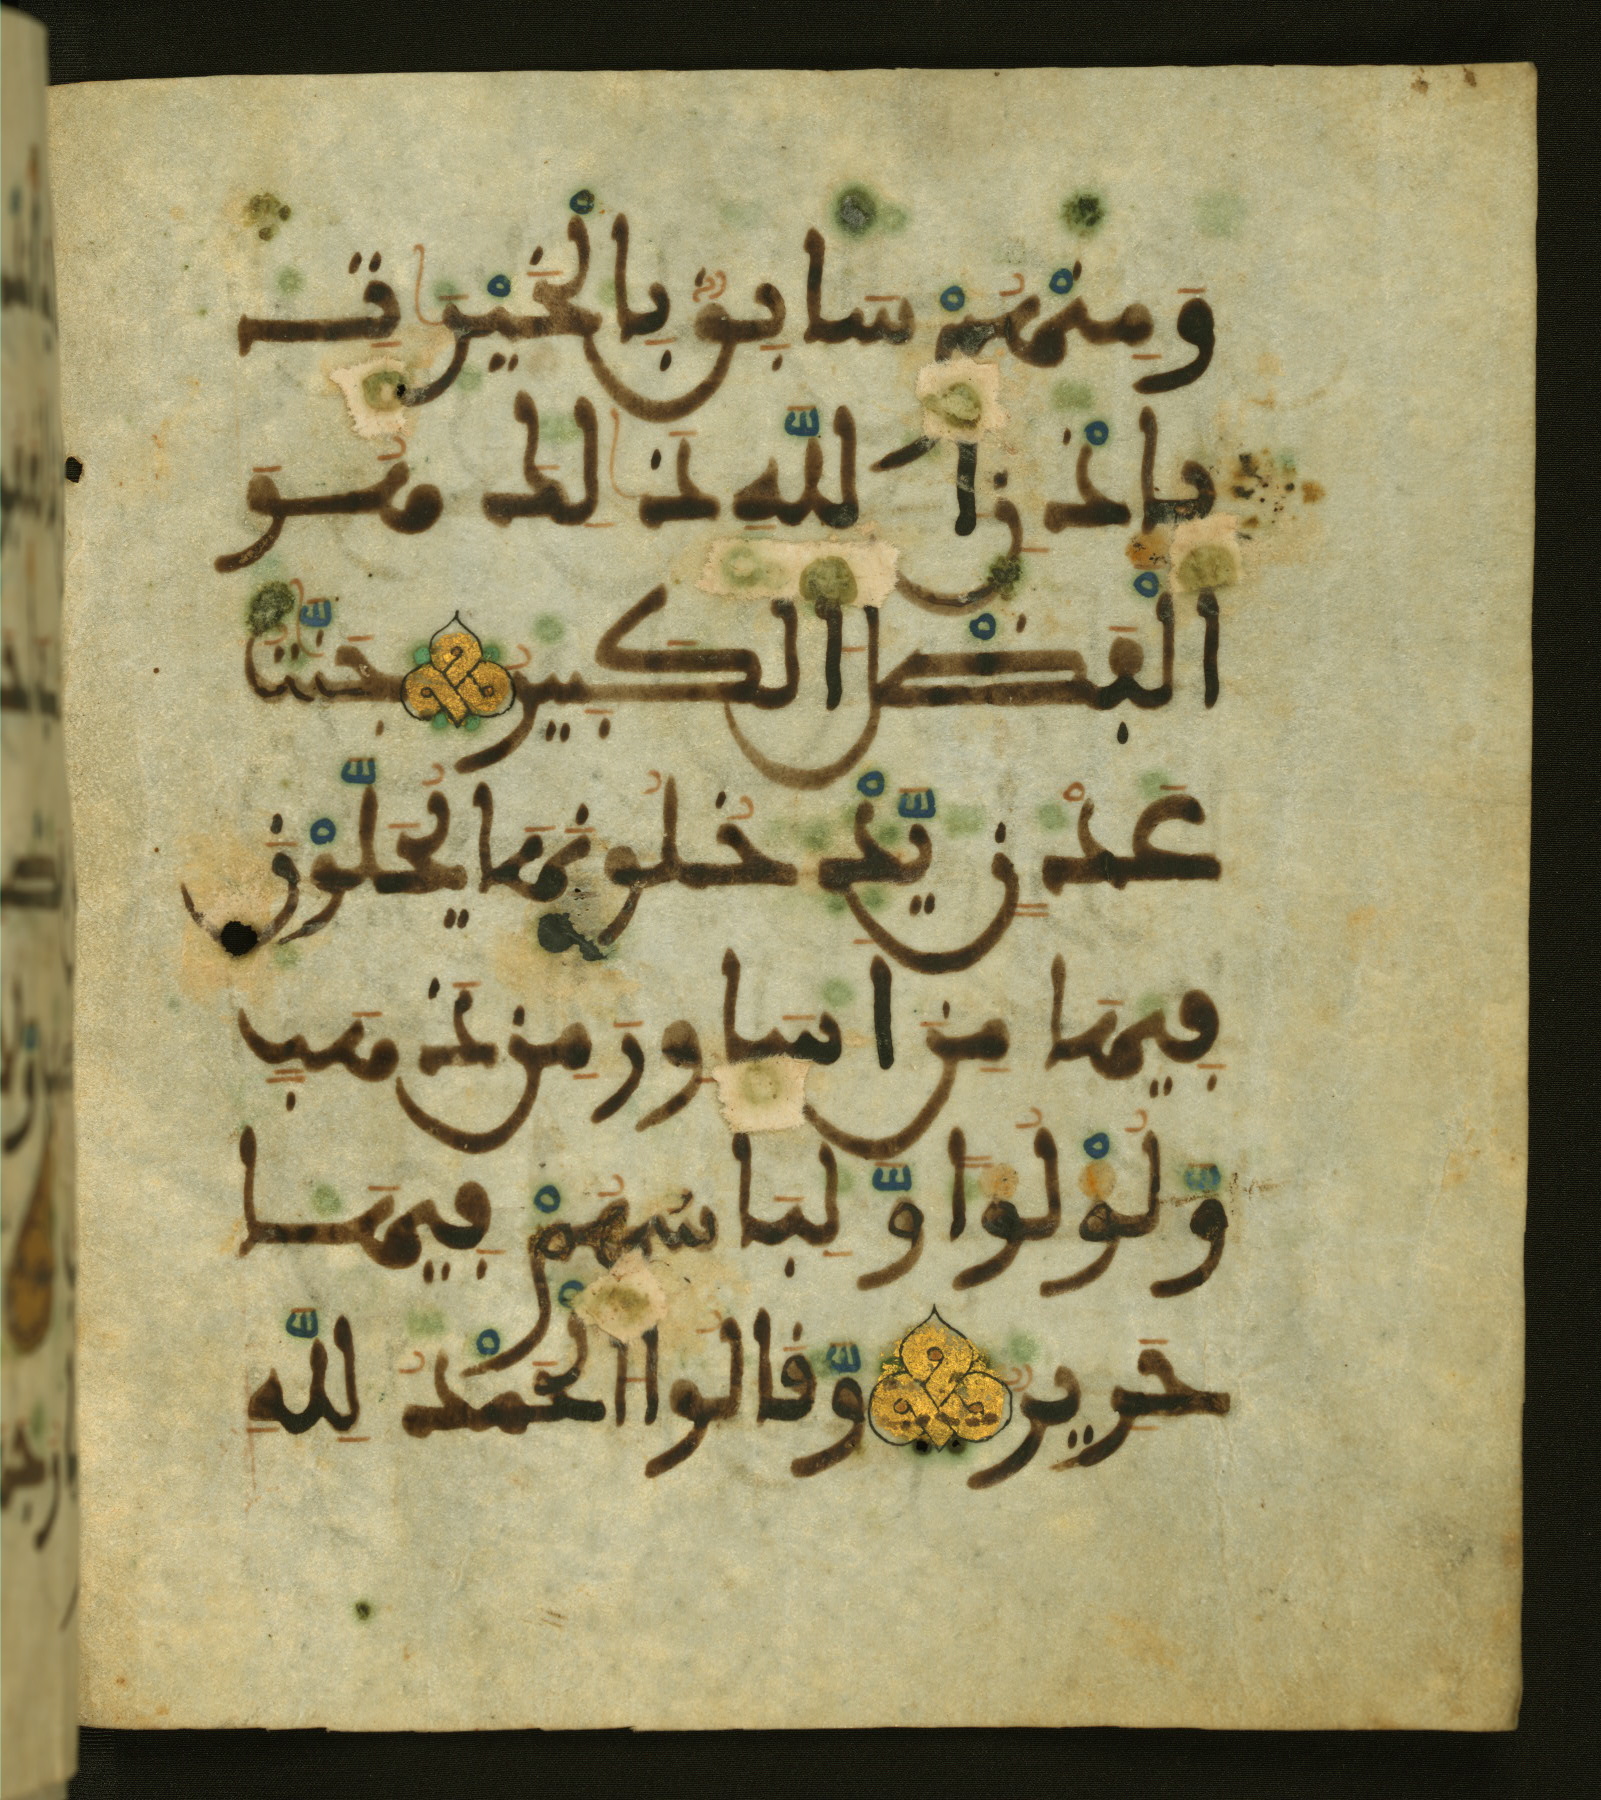 وَمِنْهُمْ سَابِقٌ بِالْخَيْرَٰتِ
بِإِذْنِ اللَّهِ ذَٰلِكَ هُوَ
الْفَضْلُ الْكَبِيرُ جَنَّٰتُ
عَدْنٍ يَّدْخُلُونَهَا يُحَلَّوْنَ
فِيهَا مِنْ أَسَاوِرَ مِن ذَهَبٍ
وَّلُؤْلُؤًا وَّلِبَاسُهُمْ فِيهَا
حَرِيرٌ وَّقَالُوا الْحَمْدُ لِلَّهِ